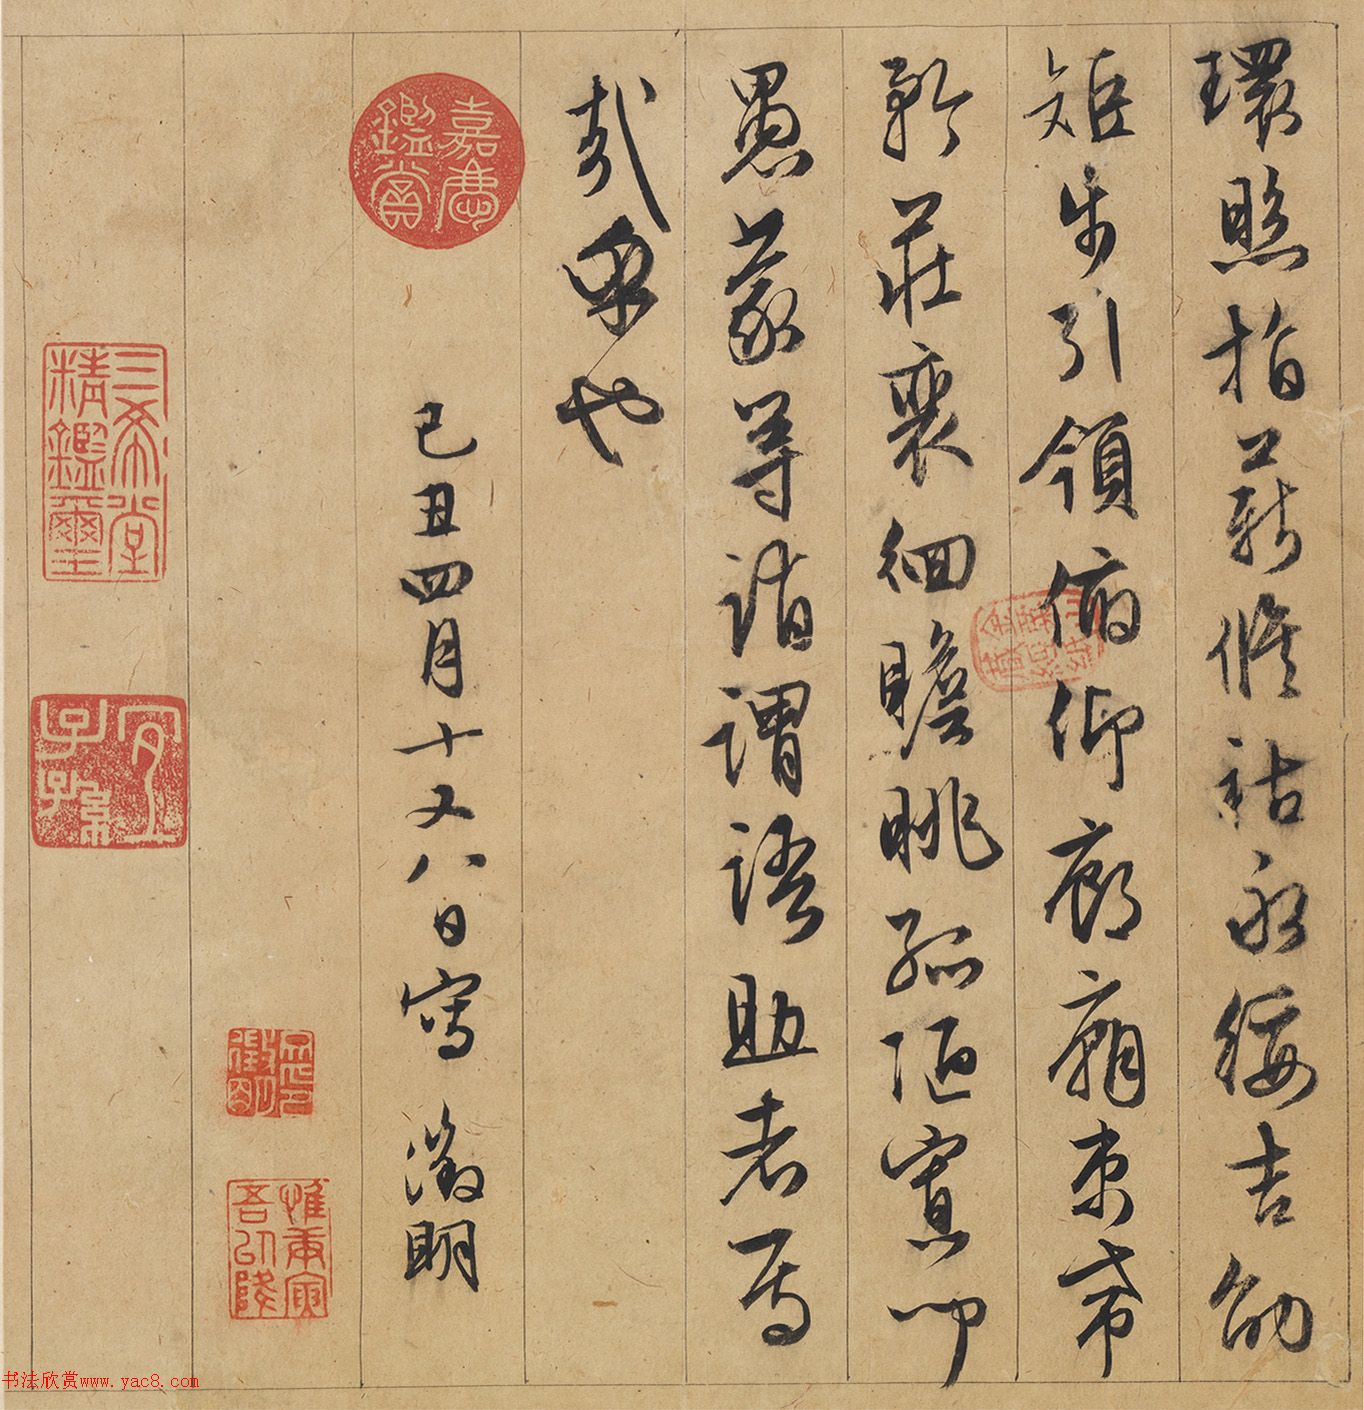 環照指薪修祜永綏吉劭
矩步引領俯仰廊廟束帶
矜莊裴徊瞻眺孤陋寡聞
愚蒙等誚謂語助者焉
哉乎也
己丑四月十又八日寫 徵明
嘉慶鑑賞
三希堂精鑑璽
宜子孫
惟庚寅吾以降
书法欣赏www.yac8.com